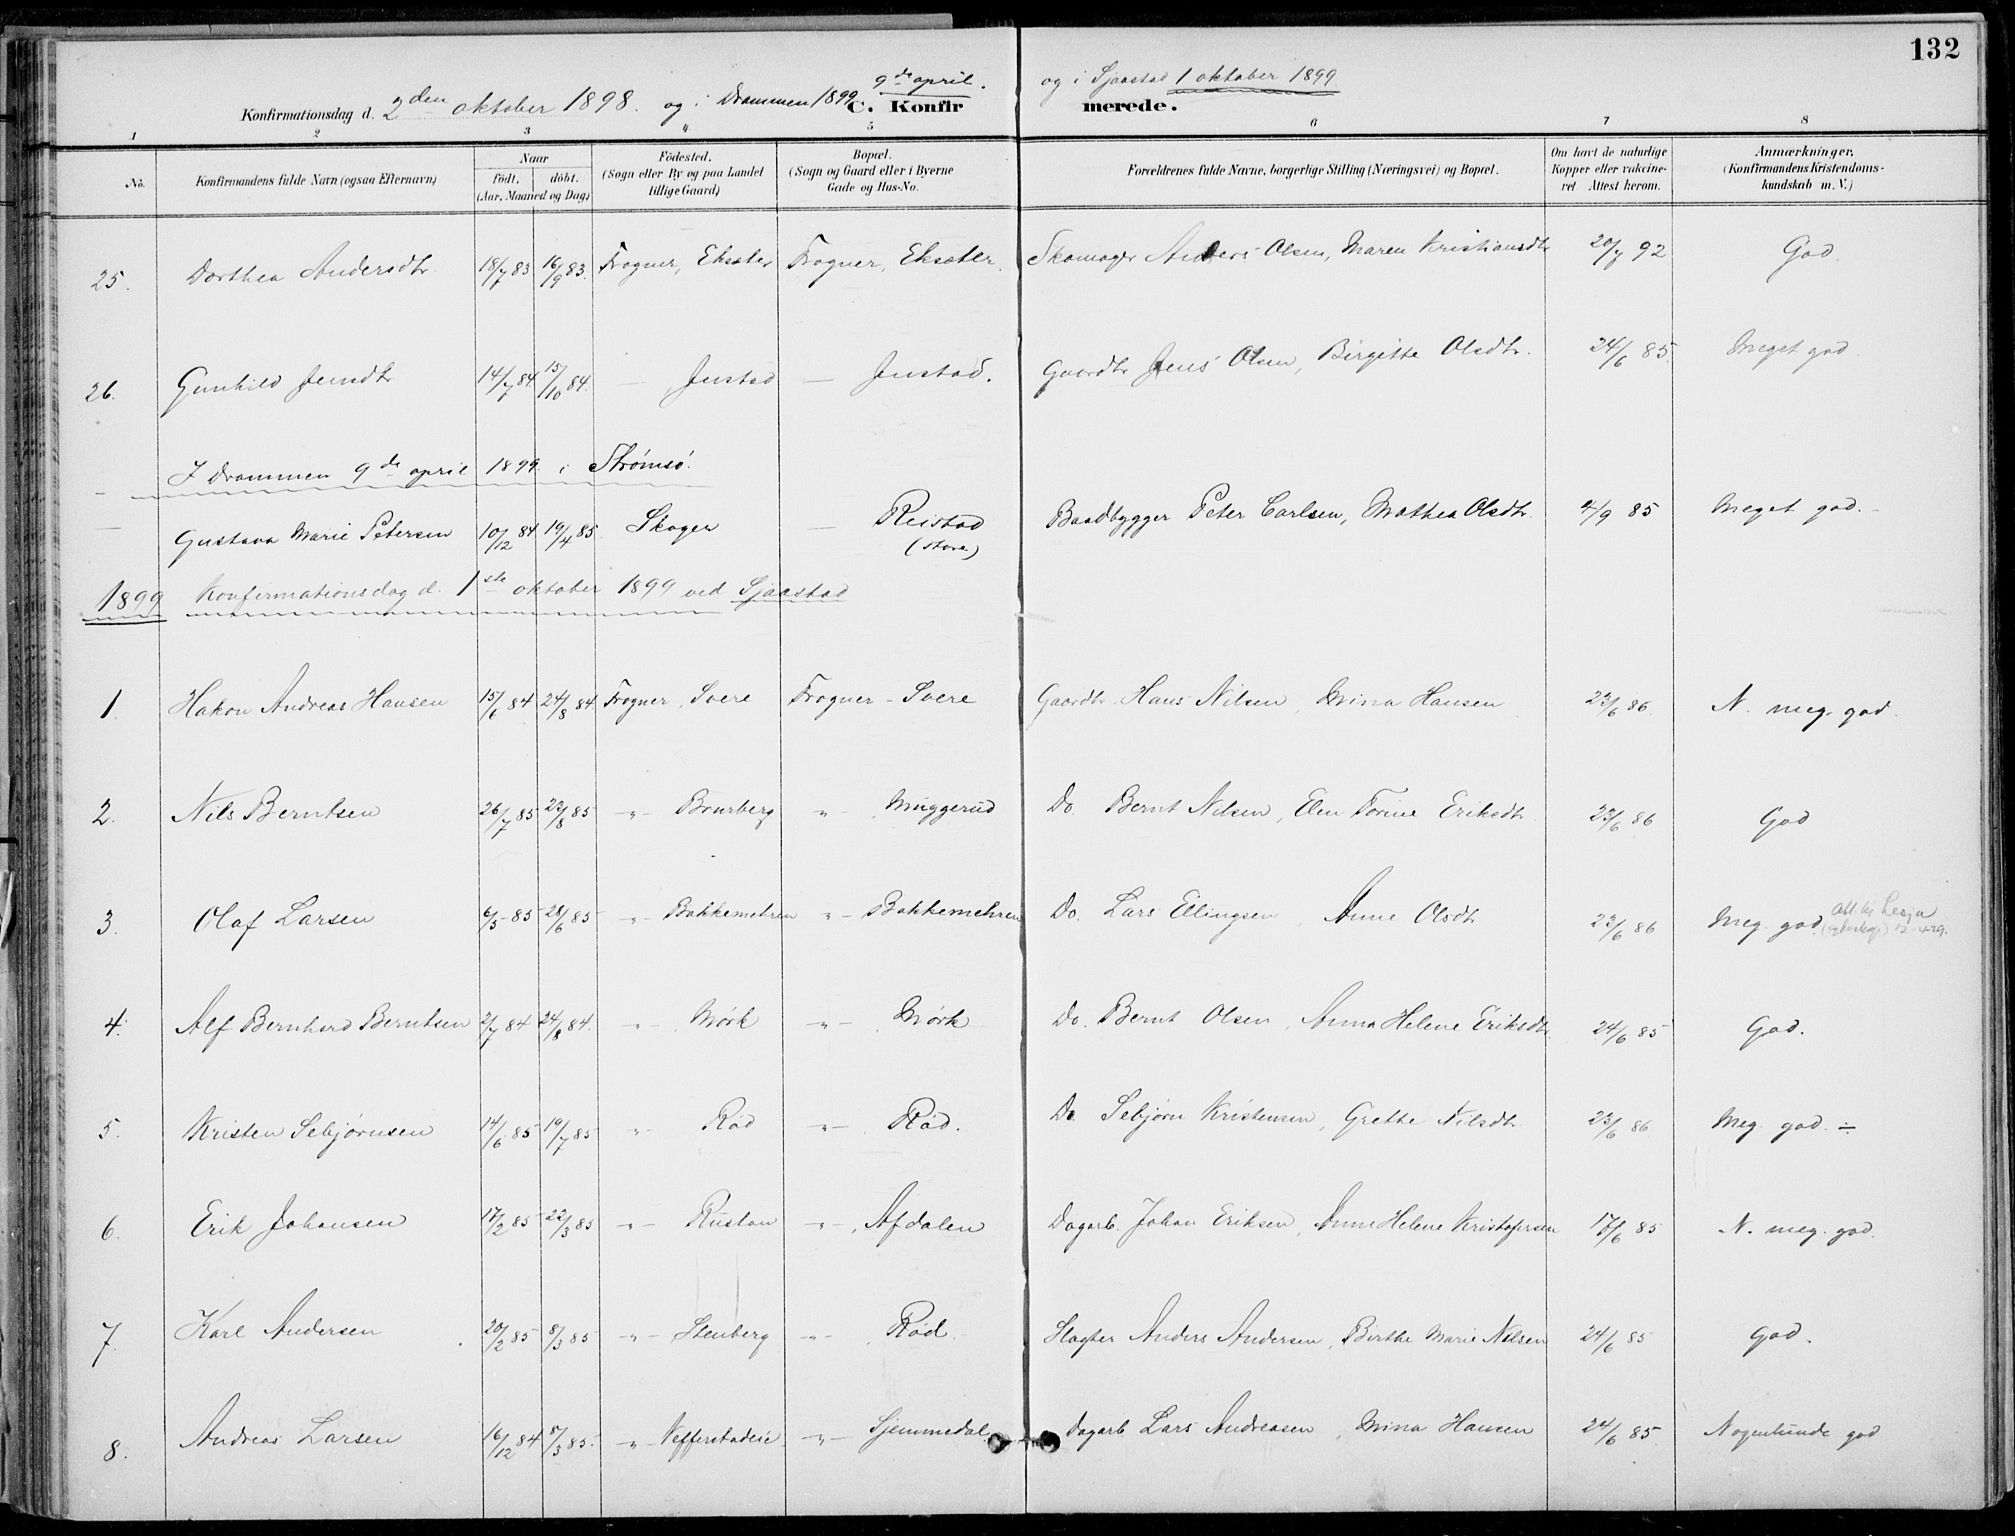 132
Konfirmationsdag d. 2den oktober 1898. og i Drammen 1899 9de april. og i Sjaastad 1 oktober 1899
C. Konfirmerede.
1 2 3 4 5 6 7 8
No. Konfirmandens fulde Navn (ogsaa Efternavn) Naar født. døbt. (Aar, Maaned og Dag) Fødested. (Sogn eller By og paa Landet tillige Gaard) Bopæl. (Sogn og Gaard eller i Byerne Gade og Hus-No. Forældrenes fulde Navne, borgerlige Stilling (Næringsvei) og Bopæl. Om havt de naturlige Kopper eller vakcineret. Attest herom. Anmærkninger, (Konfirmandens Kristendomskundskab m. V.)
25. Dorthea Andersdtr. 18/7 83 16/9 83. Frogner, Eksæter Frogner, Eksæter. Skomager Anders Olsen, Maren Kristiansdtr 20/7 92 God.
26. Gunhild Jensdtr 14/7 84 15/10 84. — Justad — Justad. Gaardbr Jens Olsen, Birgitte Olsdtr. 24/6 85. Meget god.
I Drammen 9de april 1899 i Strømsø.
— Gustava Marie Petersen 10/12 84 19/4 85 Skoger — Reistad (store) Baadbygger Peter Carlsen, Mathea Olsdtr. 4/9 85 Meget god. -
1899 Konfirmationsdag d. 1ste oktober 1899 ved Sjaastad
1. Hakon Andreas Hansen 15/6 84 24/8 84 Frogner, Svere Frogner - Svere Gaardbr. Hans Nilsen, Mina Hansen 23/6 86. N. meg. god.
2. Nils Berntsen 26/7 85 23/8 85 -"- -"- Muggerud Do. Bernt Nilsen, Elen Torine Eriksdtr. 23/6 86 God
3. Olaf Larsen 6/5 85 28/6 85 -"- Bakkemehren -"- Bakkemehren Do. Lars Ellingsen, Anne Olsdtr 23/6 86 Meg. god. Lesja
4. Alf Bernhard Berntsen 2/7 84 24/8 84. -"- Mørk -"- Mørk Do. Bernt Olsen, Anna Helene Eriksdtr. 24/6 85 God.
5. Kristen Sebjørnsen 14/6 85 19/7 85 -"- Rød -"- Rød. Do. Sebjørn Kristensen, Grethe Nilsdtr. 23/6 86 Meg. god. ÷
6. Erik Johansen 17/2 85 22/3 85 -"- Rustan -"- Afdalen Dagarb. Johan Eriksen, Anne Helene Kristofersen 17/6 85 N. meg. god.
7. Karl Andersen 20/2 85 8/3 85 -"- Stenberg -"- Rød. Slagter Anders Andersen, Birthe Marie Nilsen 24/6 85 God.
8. Andreas Larsen 16/12 84 8/3 85. -"- -"- Sjemmedal Dagarb Lars Andreasen, Mina Hansen 24/6 85. Nogenlunde god